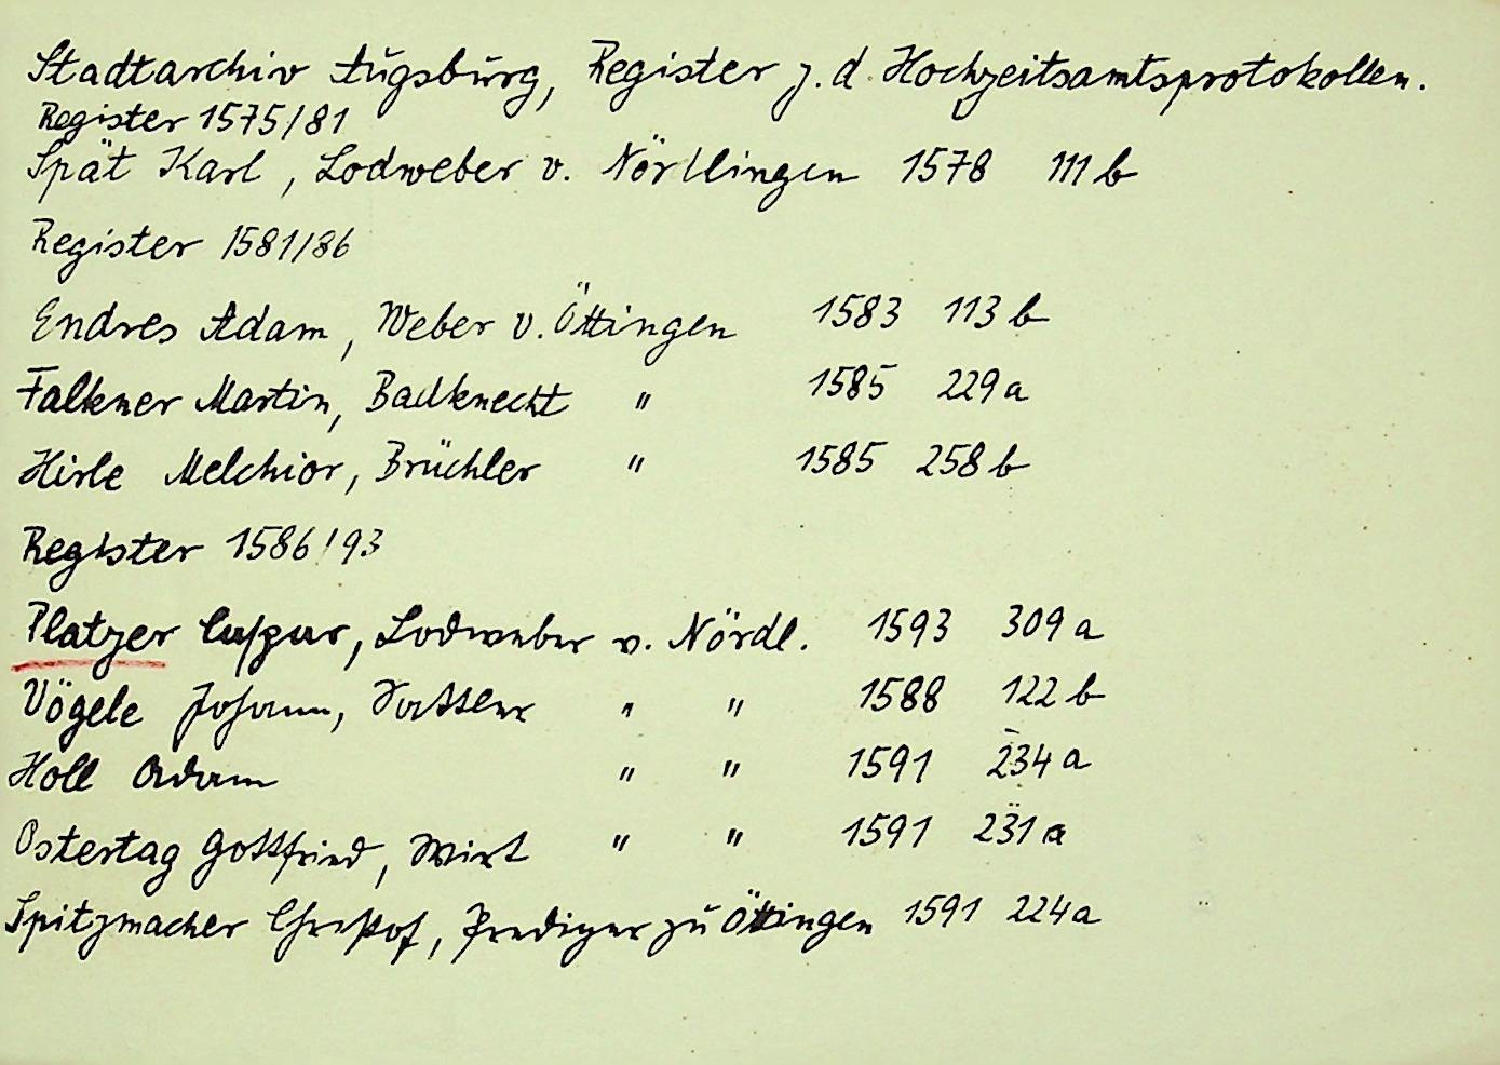 Stadtarchiv Augsburg, Register z. d. Hochzeitsamtsprotokollen.
Register 1575/81
Spät Karl, Lodweber v. Nördlingen 1578 111 b
Register 1581/86
Endres Adam, Weber v. Öttingen 1583 113 b
Falkner Martin, Badknecht " 1585 229 a
Hirle Melchior, Brüchler " 1585 258 b
Register 1586/93
Platzer Caspar, Lodweber v. Nördl. 1593 309 a
Vögele Johann, Sattler " " 1588 122 b
Holl Adam " " 1591 234 a
Ostertag Gottfried, Wirt " " 1591 231 a
Spitzmacher Christof, Prediger zu Öttingen 1591 224 a